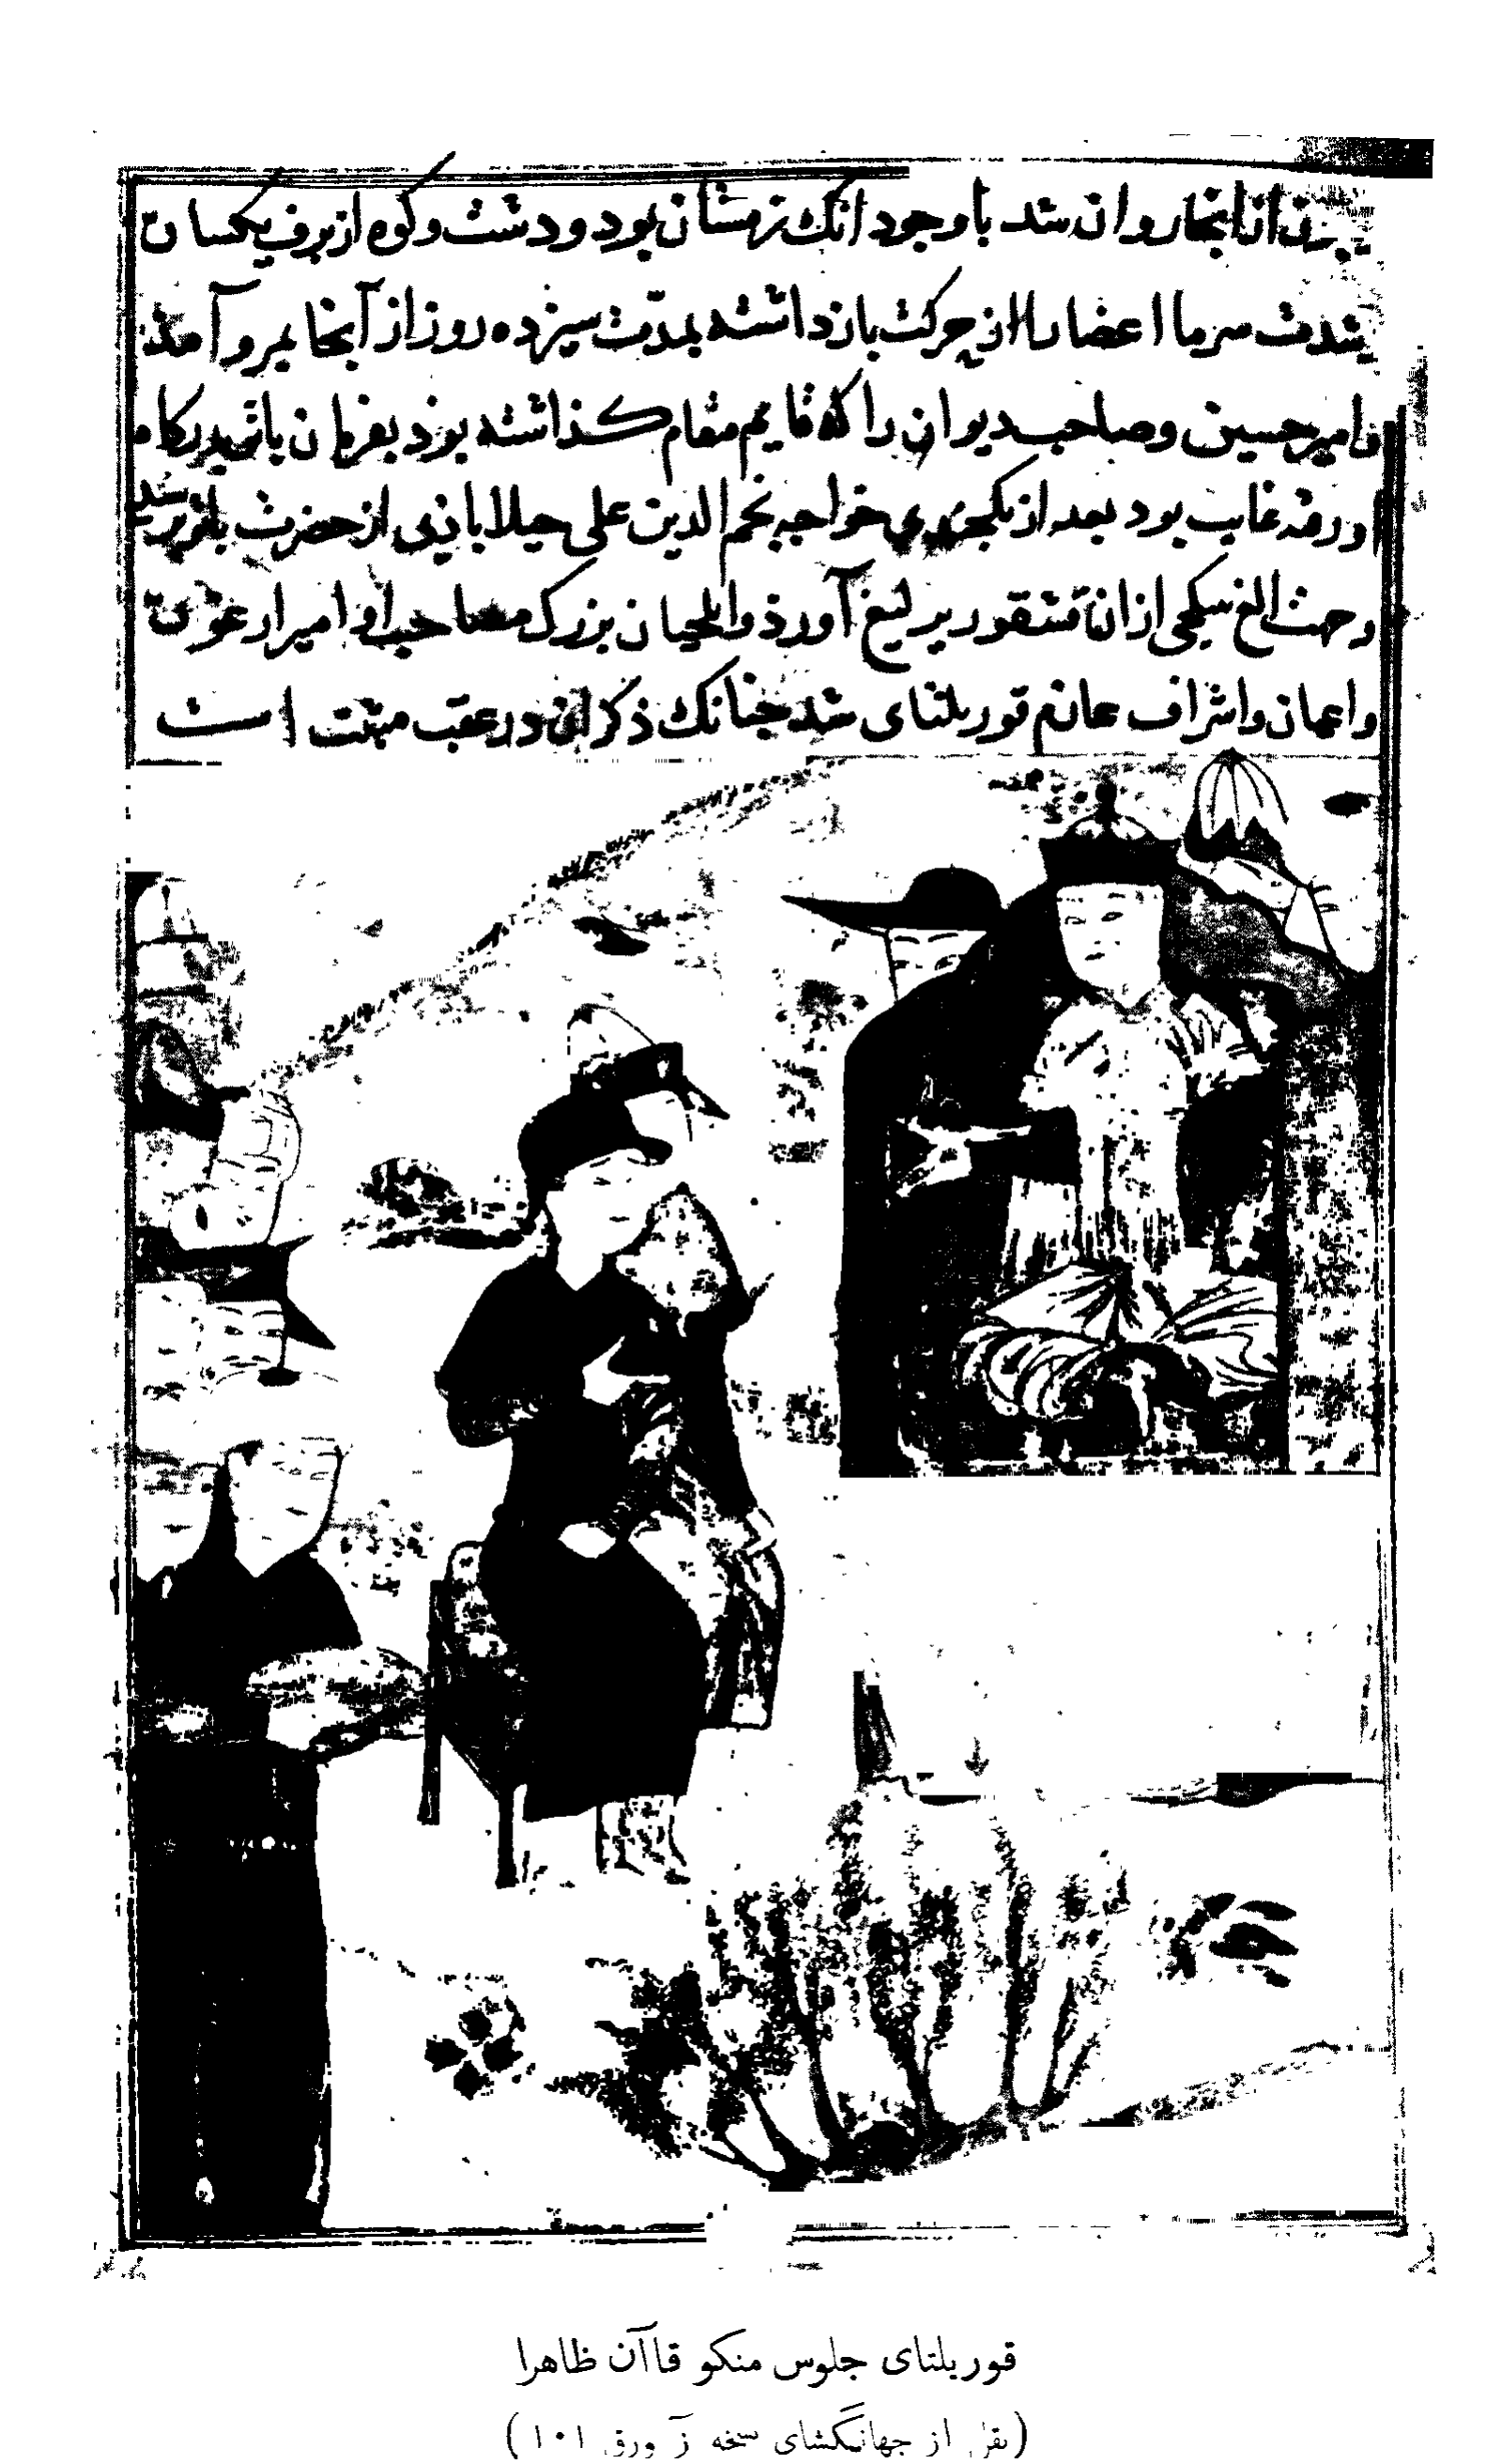 از انجا روان شد با وجود انک زمستان بود و دشت و کوه از برف یکسان
شدت سرما اعضا را از حرکت باز داشته بمدّت سیزده روز از آنجا بمرو آمذ
امیر حسین و صاحب دیوان را که قایم مقام کذاشته بوذ بفرمان
غایب بود بعد از یکچندی خواجه نجم الدین علی جیلابادی از حضرت
الغ بیتکچی از ان قتنقور یرلیغ آورد وایلچیان بزرک مصاحب او امیر ارغون
واعیان واشراف عازم قوریلتای شد چنانک ذکر ان در عقب مثبت است
قوریلتای جلوس منکو قاآن ظاهرا
(نقل از جهانگشای نسخه زَ ورق ۱۰۱)